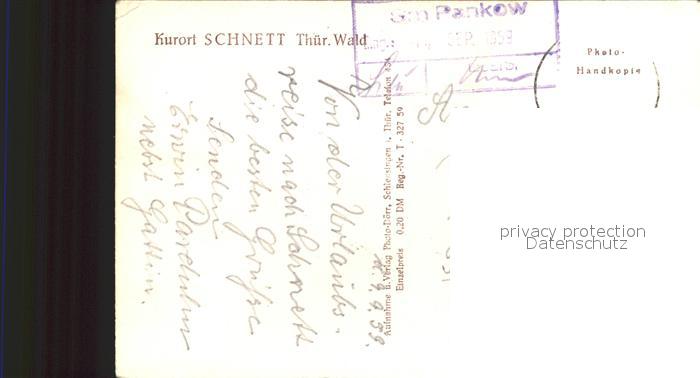 Kurort SCHNETT Thür. Wald
Sm Pankow
SEP. 1959
Photo-
Handkopie
Aufnahme u. Verlag Photo-Dörr, Schleusingen i. Thür. Telefon
Einzelpreis 0,20 DM Reg.-Nr. T 327 59
9.9.59.
Von der Urlaubs-
reise nach Schnett
die besten Grüße
senden
Erwin
nebst Gattin.
privacy protection
Datenschutz